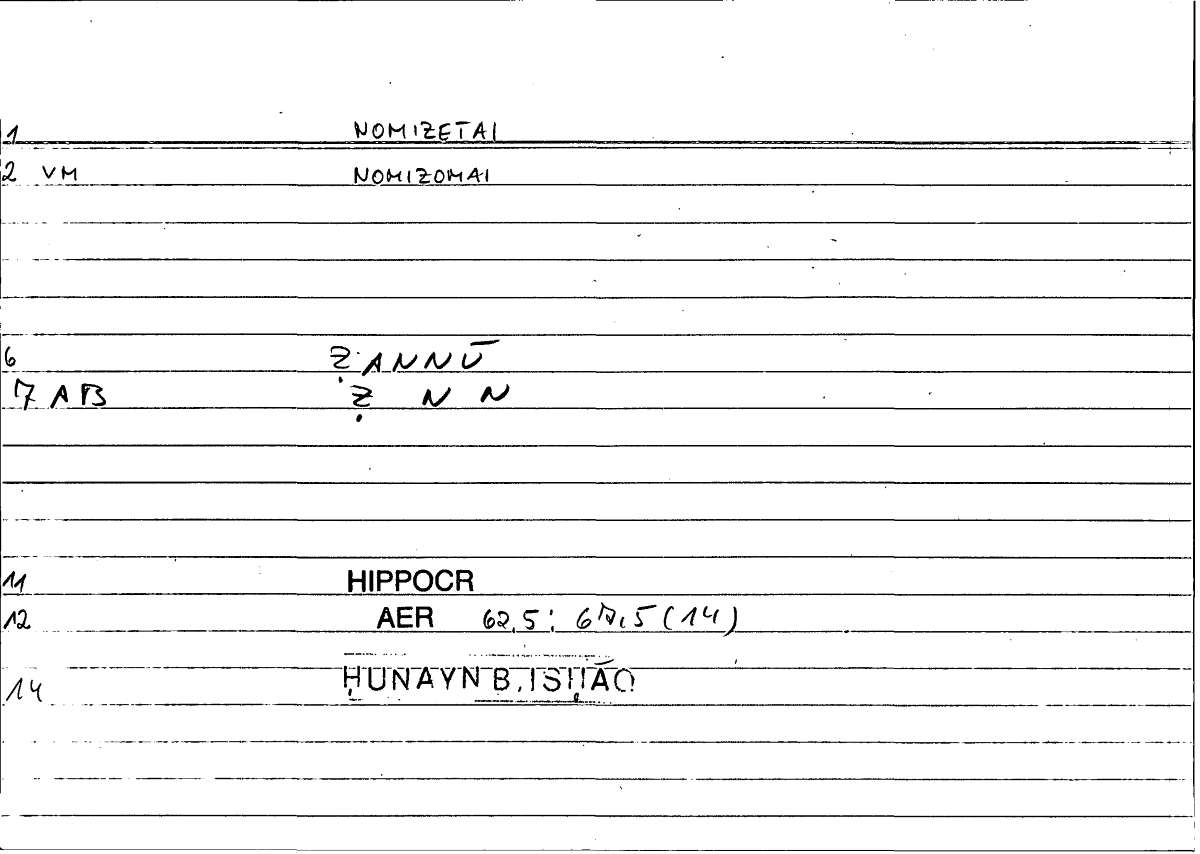 1 NOMIZETAI
2 VM NOMIZOMAI
6 ẒANNŪ
7 AB Ẓ N N
11 HIPPOCR
12 AER 62,5; 67,5 (14)
14 ḤUNAYN B. ISḤĀQ